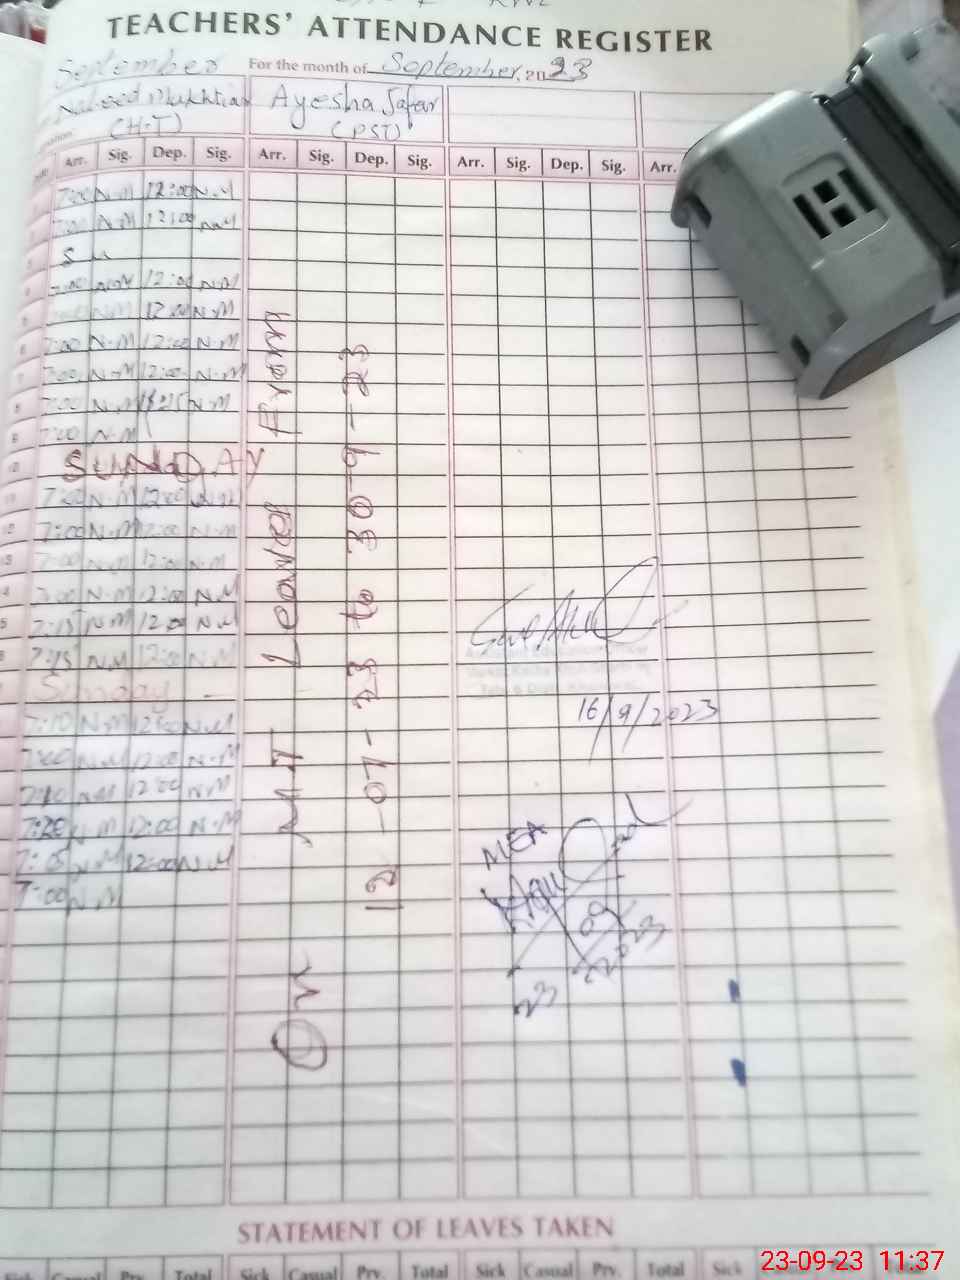 TEACHERS' ATTENDANCE REGISTER
September For the month of September, 2023
Naheed Mukhtiar Ayesha Safar
(H.T) (PST)
Arr. Sig. Dep. Sig. Arr. Sig. Dep. Sig. Arr. Sig. Dep. Sig. Arr.
7:00 N.M 12:00 N.M
7:00 N.M 12:00 N.M
S u
7:00 N.M 12:00 N.M
N.M 12:00 N.M
7:00 N.M 12:00 N.M
7:00 N.M 12:00 N.M
7:00 N.M N.M
7:00 N.M
SUNDAY
7:00 N.M 12:00 N.M
7:00 N.M 12:00 N.M
7:00 N.M 12:00 N.M
7:00 N.M 12:00 N.M
7:15 N.M 12:00 N.M
7:15 N.M 12:00 N.M
Sunday
7:10 N.M 12:00 N.M
7:00 N.M 12:00 N.M
7:10 N.M 12:00 N.M
7:20 N.M 12:00 N.M
7:05 N.M 12:00 N.M
7:00 N.M
On M.T Leaves From
12-07-23 to 30-9-23
16/9/2023
MEA
23 09 2023
STATEMENT OF LEAVES TAKEN
Sick Casual Prv. Total Sick Casual Prv. Total Sick Casual Prv. Total Sick
23-09-23 11:37